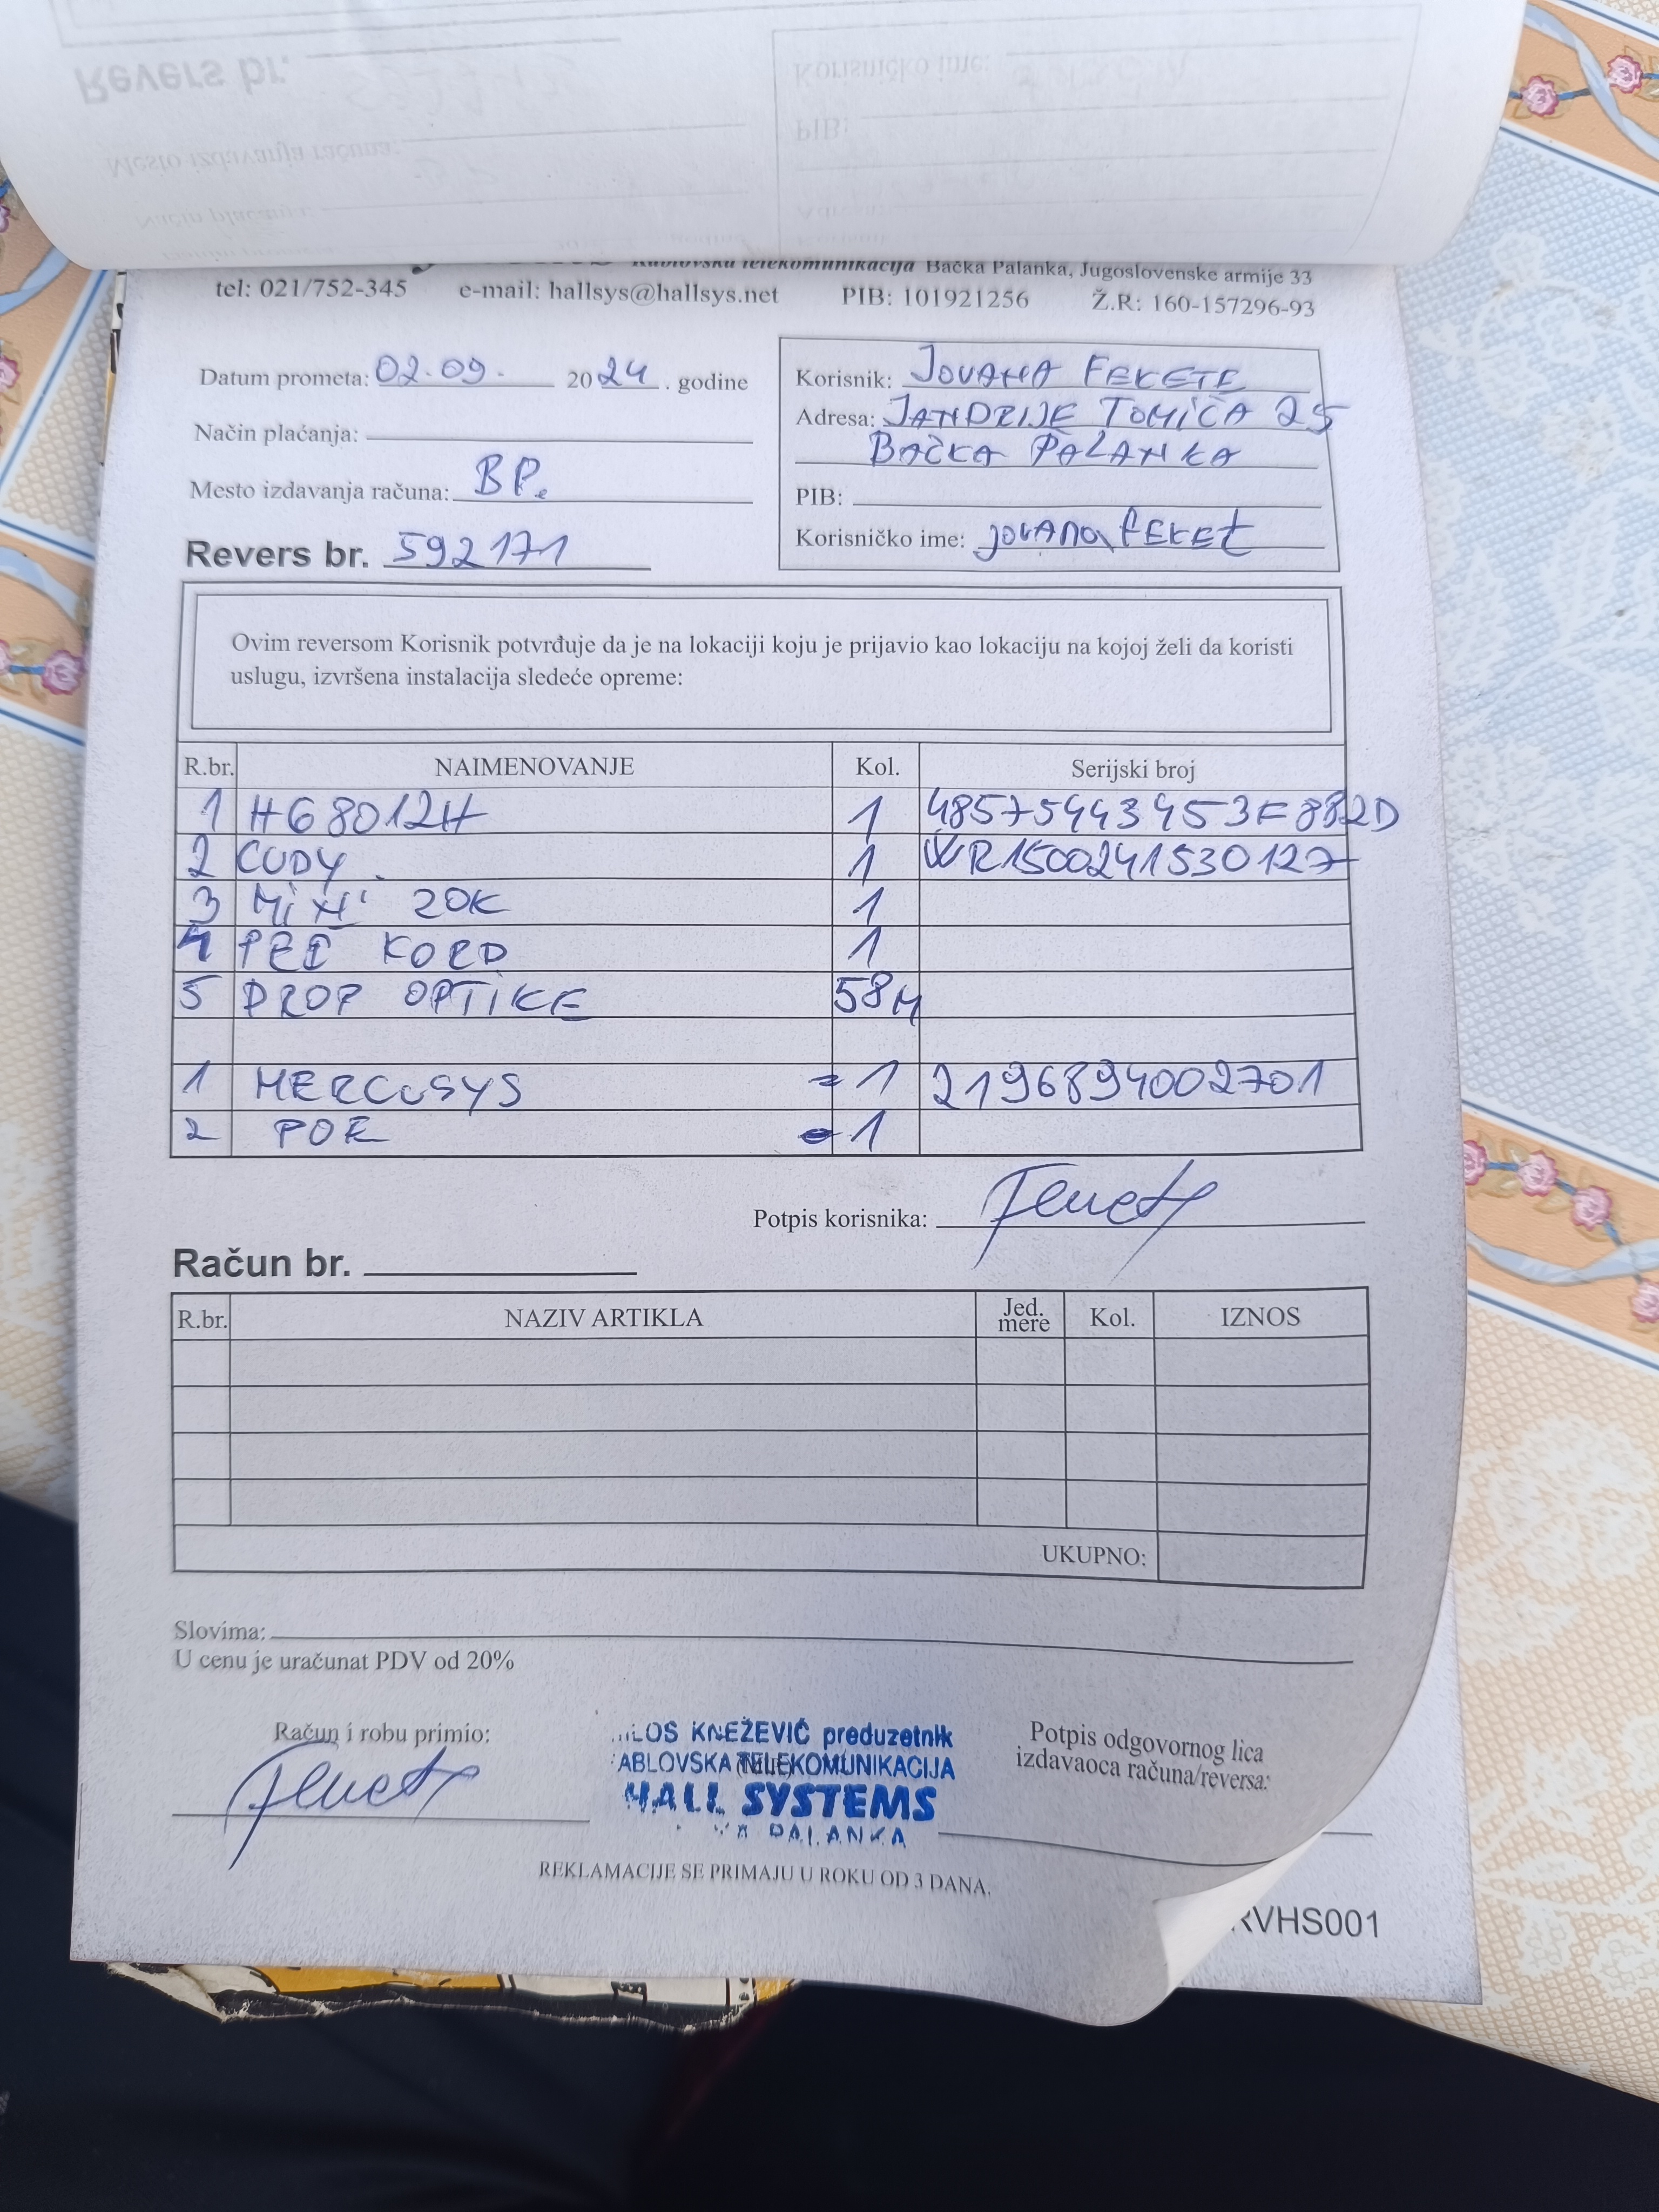 Kablovska telekomunikacija Bačka Palanka, Jugoslovenske armije 33
tel: 021/752-345 e-mail: hallsys@hallsys.net PIB: 101921256 Ž.R: 160-157296-93
Datum prometa: 02.09. 2024. godine
Način plaćanja:
Mesto izdavanja računa: BP.
Revers br. 592171
Korisnik: JOVANA FEKETE
Adresa: JANDRIJE TOMIĆA 25
BAČKA PALANKA
PIB:
Korisničko ime: jovanafeket
Ovim reversom Korisnik potvrđuje da je na lokaciji koju je prijavio kao lokaciju na kojoj želi da koristi
uslugu, izvršena instalacija sledeće opreme:
R.br. NAIMENOVANJE Kol. Serijski broj
1 HG8012H 1 485754434953F882D
2 CUDY 1 WR1500241530127
3 MiNi ZOK 1
4 PEČ KORD 1
5 DROP OPTIKE 58M
1 MERCUSYS = 1 2196894002701
2 POE - 1
Potpis korisnika:
Račun br.
R.br. NAZIV ARTIKLA Jed. mere Kol. IZNOS
UKUPNO:
Slovima:
U cenu je uračunat PDV od 20%
Račun i robu primio:
LOS KNEŽEVIĆ preduzetnik
ABLOVSKA TELEKOMUNIKACIJA
HALL SYSTEMS
PALANKA
Potpis odgovornog lica
izdavaoca računa/reversa:
REKLAMACIJE SE PRIMAJU U ROKU OD 3 DANA.
RVHS001
Revers br.
Mesto izdavanja računa:
Način plaćanja:
Korisničko ime:
PIB: